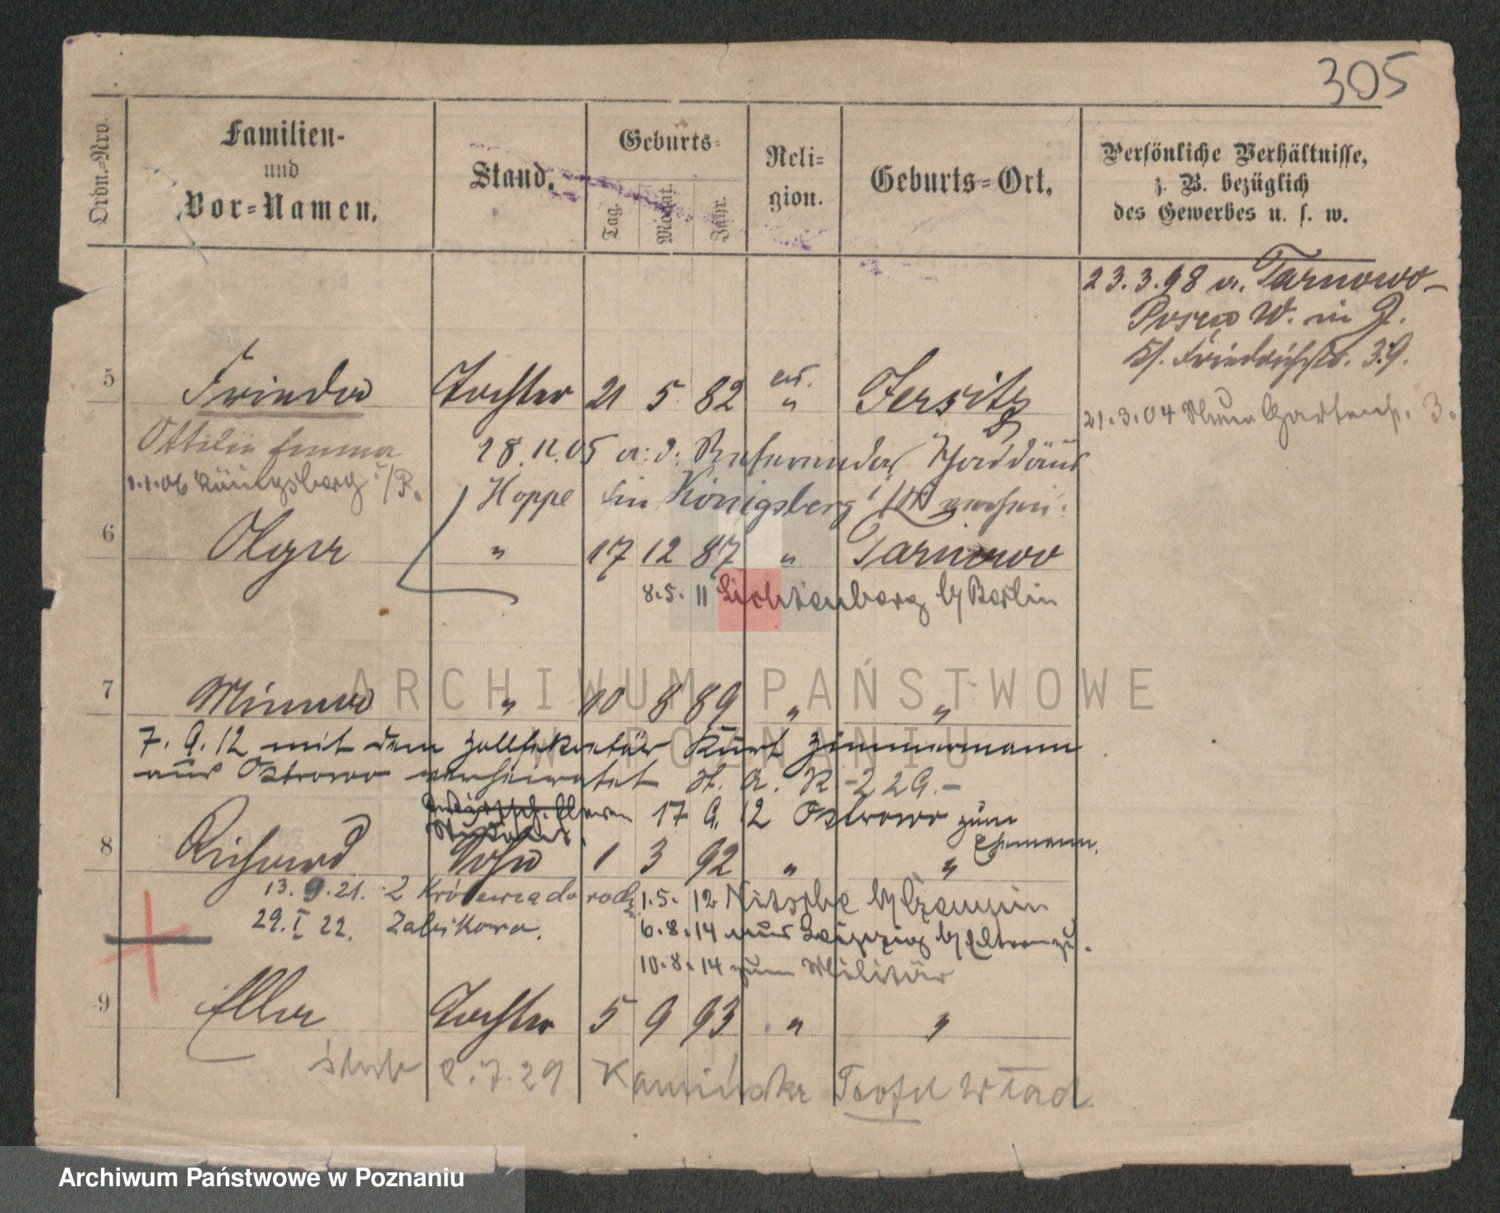 305
Ordn.-Nro.
Familien-
und
Vor-Namen.
Stand.
Geburts-
Tag.
Monat.
Jahr.
Reli-
gion.
Geburts-Ort.
Persönliche Verhältnisse,
z. B. bezüglich
des Gewerbes u. s. w.
23.3.98 v. Tarnowo-
Posen W. in J.
Friedrichstr. 39.
21.3.04 Neue Gartenstr. 3.
5 Frieda Tochter 21 5 82 ev. " Jersitz
Ottilie Emma
18.11.05 a. d. Referendar Thaddäus
1.1.06 Königsberg /Pr.
Hoppe in Königsberg
6 Olga " 17 12 87 " Tarnowo
8.5.11 Lichtenberg b/Berlin
7 Minna " 10 8 89 " "
7.9.12 mit dem Zollsekretär Kurt Zimmermann
aus Ostrowo verheiratet H. A. R - 229.-
17 9 12 Ostrowo zum
Ehemann.
8 Richard Sohn 1 3 92 " "
13.9.21. 2
1.5.12 Nitsche b/Czempin
29.I 22. Zabikowo.
6.8.14 aus Leipzig b/Eltern zu.
10.8.14 zum Militär
9 Ella Tochter 5 9 93 " "
8.7.29 Kamiński Teofil Wład
ARCHIWUM PAŃSTWOWE
W POZNANIU
Archiwum Państwowe w Poznaniu